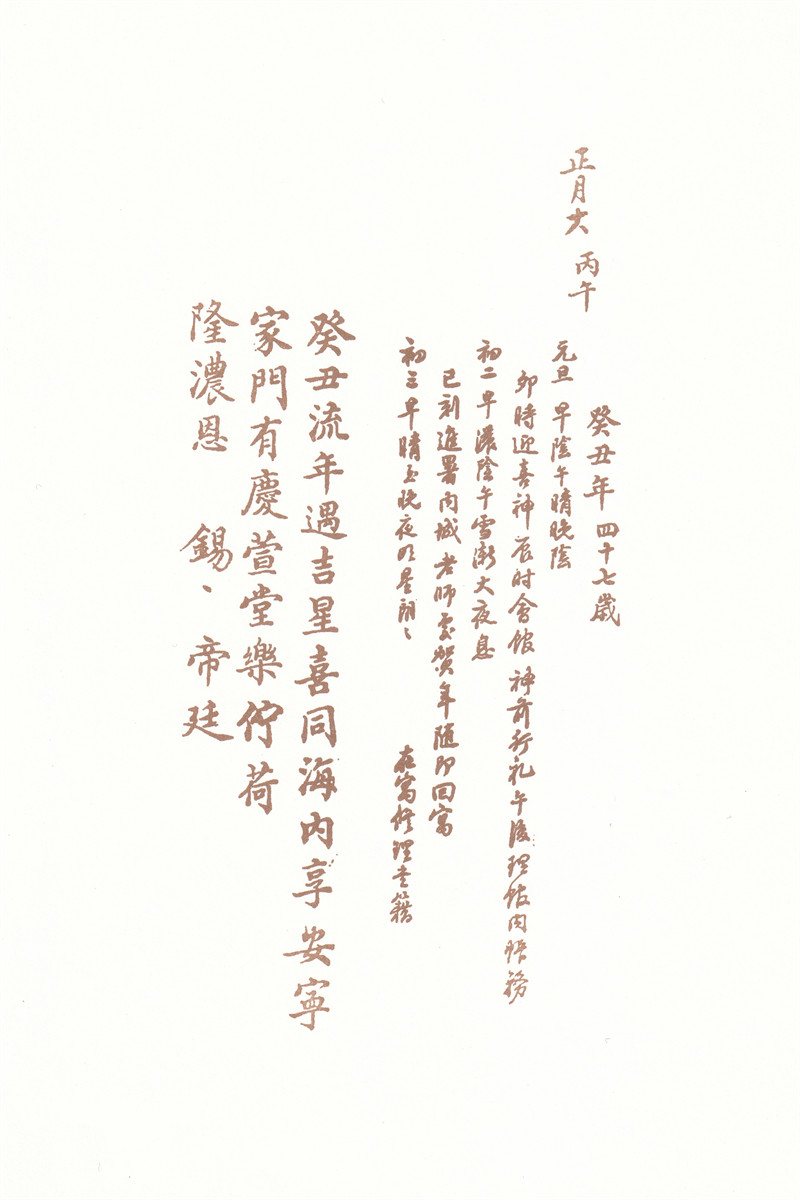 正月大 丙午
癸丑年四十七歲
元旦 早陰午晴晚陰
卯時迎喜神辰时會館 神前行礼午後理館内賬務
初二早濃陰午雪漸大夜息
已刻進署内城 老师處賀年随即回寓
初三早晴至晚夜明星朗〻 在寓修理書籍
癸丑流年遇吉星喜同海内享安寧
家門有慶萱堂樂佇荷
隆濃恩 錫、帝廷